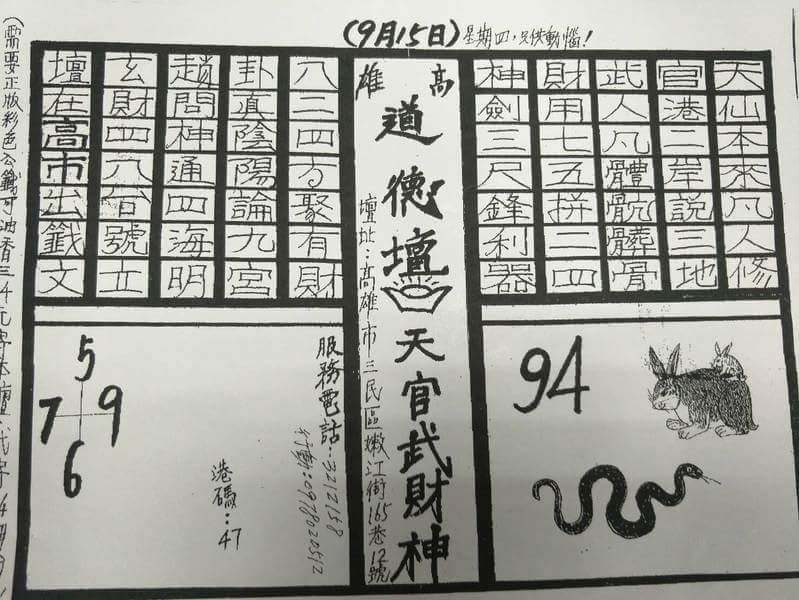 (9月15日)星期四,只供動惱!
天仙本來凡人修
官港二岸説三地
武人凡體骯髒骨
財用七五拼二四
神劍三尺鋒利器
94
高雄
道德壇天官武財神
壇址:高雄市三民區嫩江街165巷12號
八二四方聚有財
卦真陰陽論九宮
趙問神通四海明
玄財四八台號立
壇在高市出籤文
服務電話:3212158
行動:0978020512
港碼:47
5
7 9
6
(需要正版彩色公籤可油香